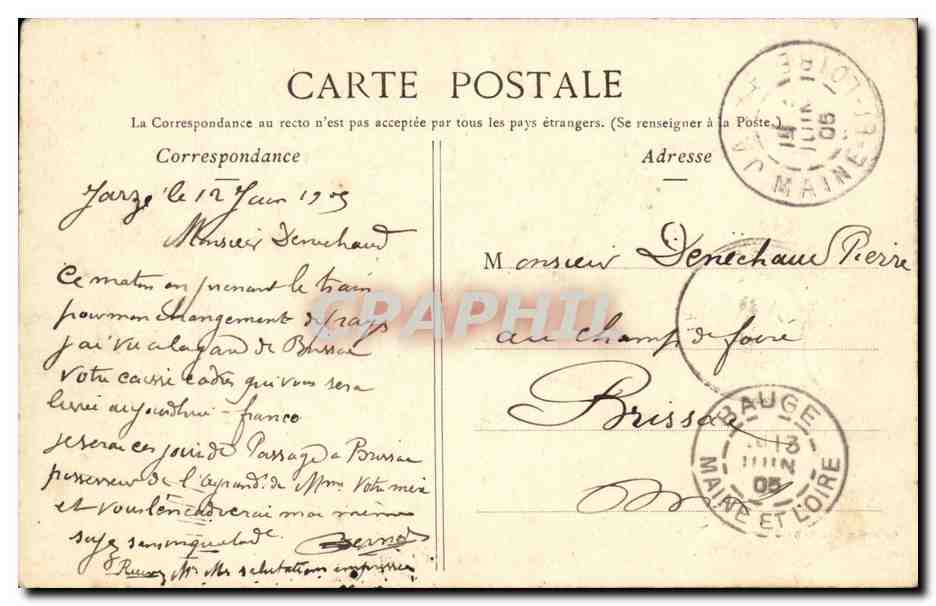 CARTE POSTALE
La Correspondance au recto n'est pas acceptée par tous les pays étrangers. (Se renseigner à la Poste.)
Correspondance
Jarzé le 12 Juin 1905
Monsieur Denechaud
Ce matin en prenant le train
pour mon changement de pays
j'ai vu a la gand de Brissac
votre caisse cadres qui vous sera
livrée aujourdhui franco
je serai ces jours de Passage a Brissac
possesseur de l'agrand. de Mme votre mère
et vous l'encadrerai moi même
soyez sans inquietude
Mr Me salutations empressées
Adresse
Monsieur Denéchaud Pierre
au champ de foire
Brissac
M L
JARZÉ
JUIN
05
MAINE-ET-LOIRE
BAUGÉ
13
JUIN
05
MAINE ET LOIRE
CPAPHIL